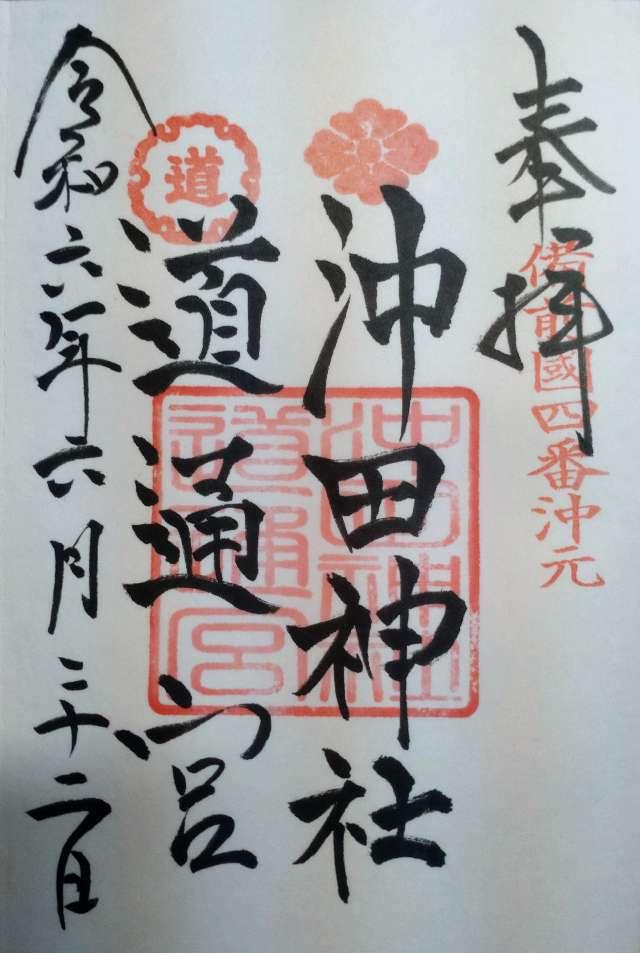 奉拝
備前國四番沖元
沖田神社
道
道通宮
沖田神社
道通宮
令和六年六月二十二日